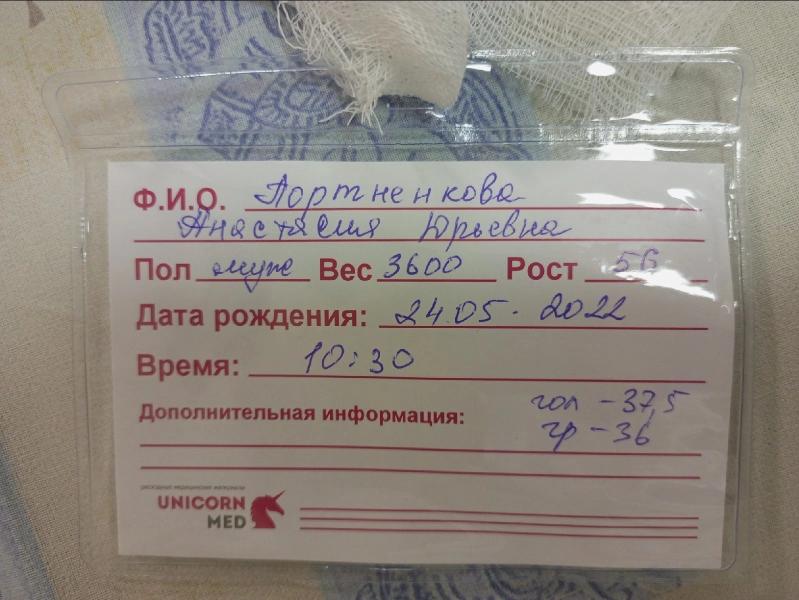 Ф.И.О. Портненкова
Анастасия Юрьевна
Пол муж Вес 3600 Рост 56
Дата рождения: 24.05. 2022
Время: 10:30
Дополнительная информация: гол – 37,5
гр – 36
расходные медицинские материалы
UNICORN
MED